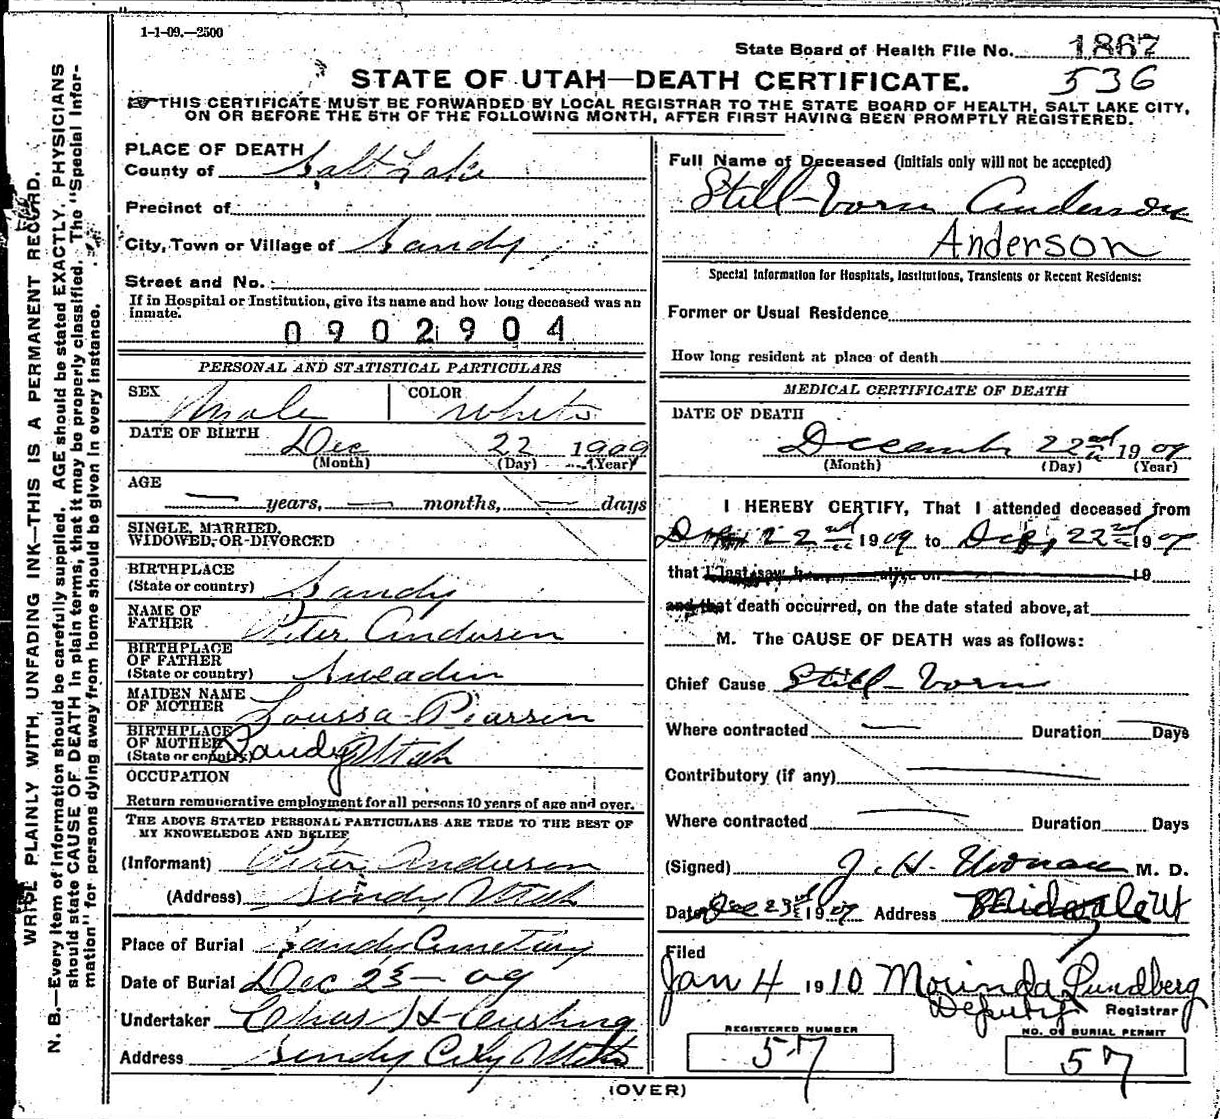 1-1-09.—2500
State Board of Health File No. 1867
536
STATE OF UTAH—DEATH CERTIFICATE.
THIS CERTIFICATE MUST BE FORWARDED BY LOCAL REGISTRAR TO THE STATE BOARD OF HEALTH, SALT LAKE CITY,
ON OR BEFORE THE 5TH OF THE FOLLOWING MONTH, AFTER FIRST HAVING BEEN PROMPTLY REGISTERED.
WRITE PLAINLY WITH UNFADING INK—THIS IS A PERMANENT RECORD.
N. B.—Every item of information should be carefully supplied. AGE should be stated EXACTLY. PHYSICIANS
should state CAUSE OF DEATH in plain terms, that it may be properly classified. The "Special Infor-
mation" for persons dying away from home should be given in every instance.
PLACE OF DEATH
County of Salt Lake
Precinct of
City, Town or Village of Sandy
Street and No.
If in Hospital or Institution, give its name and how long deceased was an
inmate.
0902904
PERSONAL AND STATISTICAL PARTICULARS
SEX Male COLOR White
DATE OF BIRTH Dec 22 1909
(Month) (Day) (Year)
AGE
years, months, days
SINGLE, MARRIED,
WIDOWED, OR DIVORCED
BIRTHPLACE
(State or country) Sandy
NAME OF
FATHER Peter Anderson
BIRTHPLACE
OF FATHER
(State or country) Sweaden
MAIDEN NAME
OF MOTHER Loussa Pearsen
BIRTHPLACE
OF MOTHER
(State or country) Sandy Utah
OCCUPATION
Return remunerative employment for all persons 10 years of age and over.
THE ABOVE STATED PERSONAL PARTICULARS ARE TRUE TO THE BEST OF
MY KNOWELEDGE AND BELIEF
(Informant) Peter Anderson
(Address) Sandy Utah
Place of Burial Sandy Cemetery
Date of Burial Dec 23 - 09
Undertaker Chas H Cushing
Address Sandy City Utah
Full Name of Deceased (initials only will not be accepted)
Still-Born Anderson
Anderson
Special Information for Hospitals, Institutions, Transients or Recent Residents:
Former or Usual Residence
How long resident at place of death
MEDICAL CERTIFICATE OF DEATH
DATE OF DEATH
December 22nd 1909
(Month) (Day) (Year)
I HEREBY CERTIFY, That I attended deceased from
22nd 1909 to Dec, 22nd 1909
that I last saw h alive on 19
and that death occurred, on the date stated above, at
M. The CAUSE OF DEATH was as follows:
Chief Cause Still-Born
Where contracted Duration Days
Contributory (if any)
Where contracted Duration Days
(Signed) J. H. M. D.
Date Dec 23rd 1909 Address Midvale Ut
Filed
Jan 4 1910 Morinda Lundberg
Deputy Registrar
REGISTERED NUMBER
57
NO. OF BURIAL PERMIT
57
(OVER)